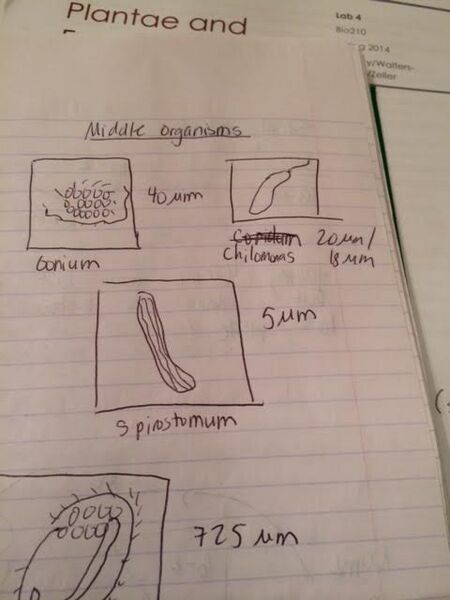 Plantae and
Lab 4
Bio210
2014
y/Walters-
/Zeller
Middle organisms
40 µm
Gonium
Chilomonas
20 µm/
18 µm
5 µm
Spirostomum
725 µm